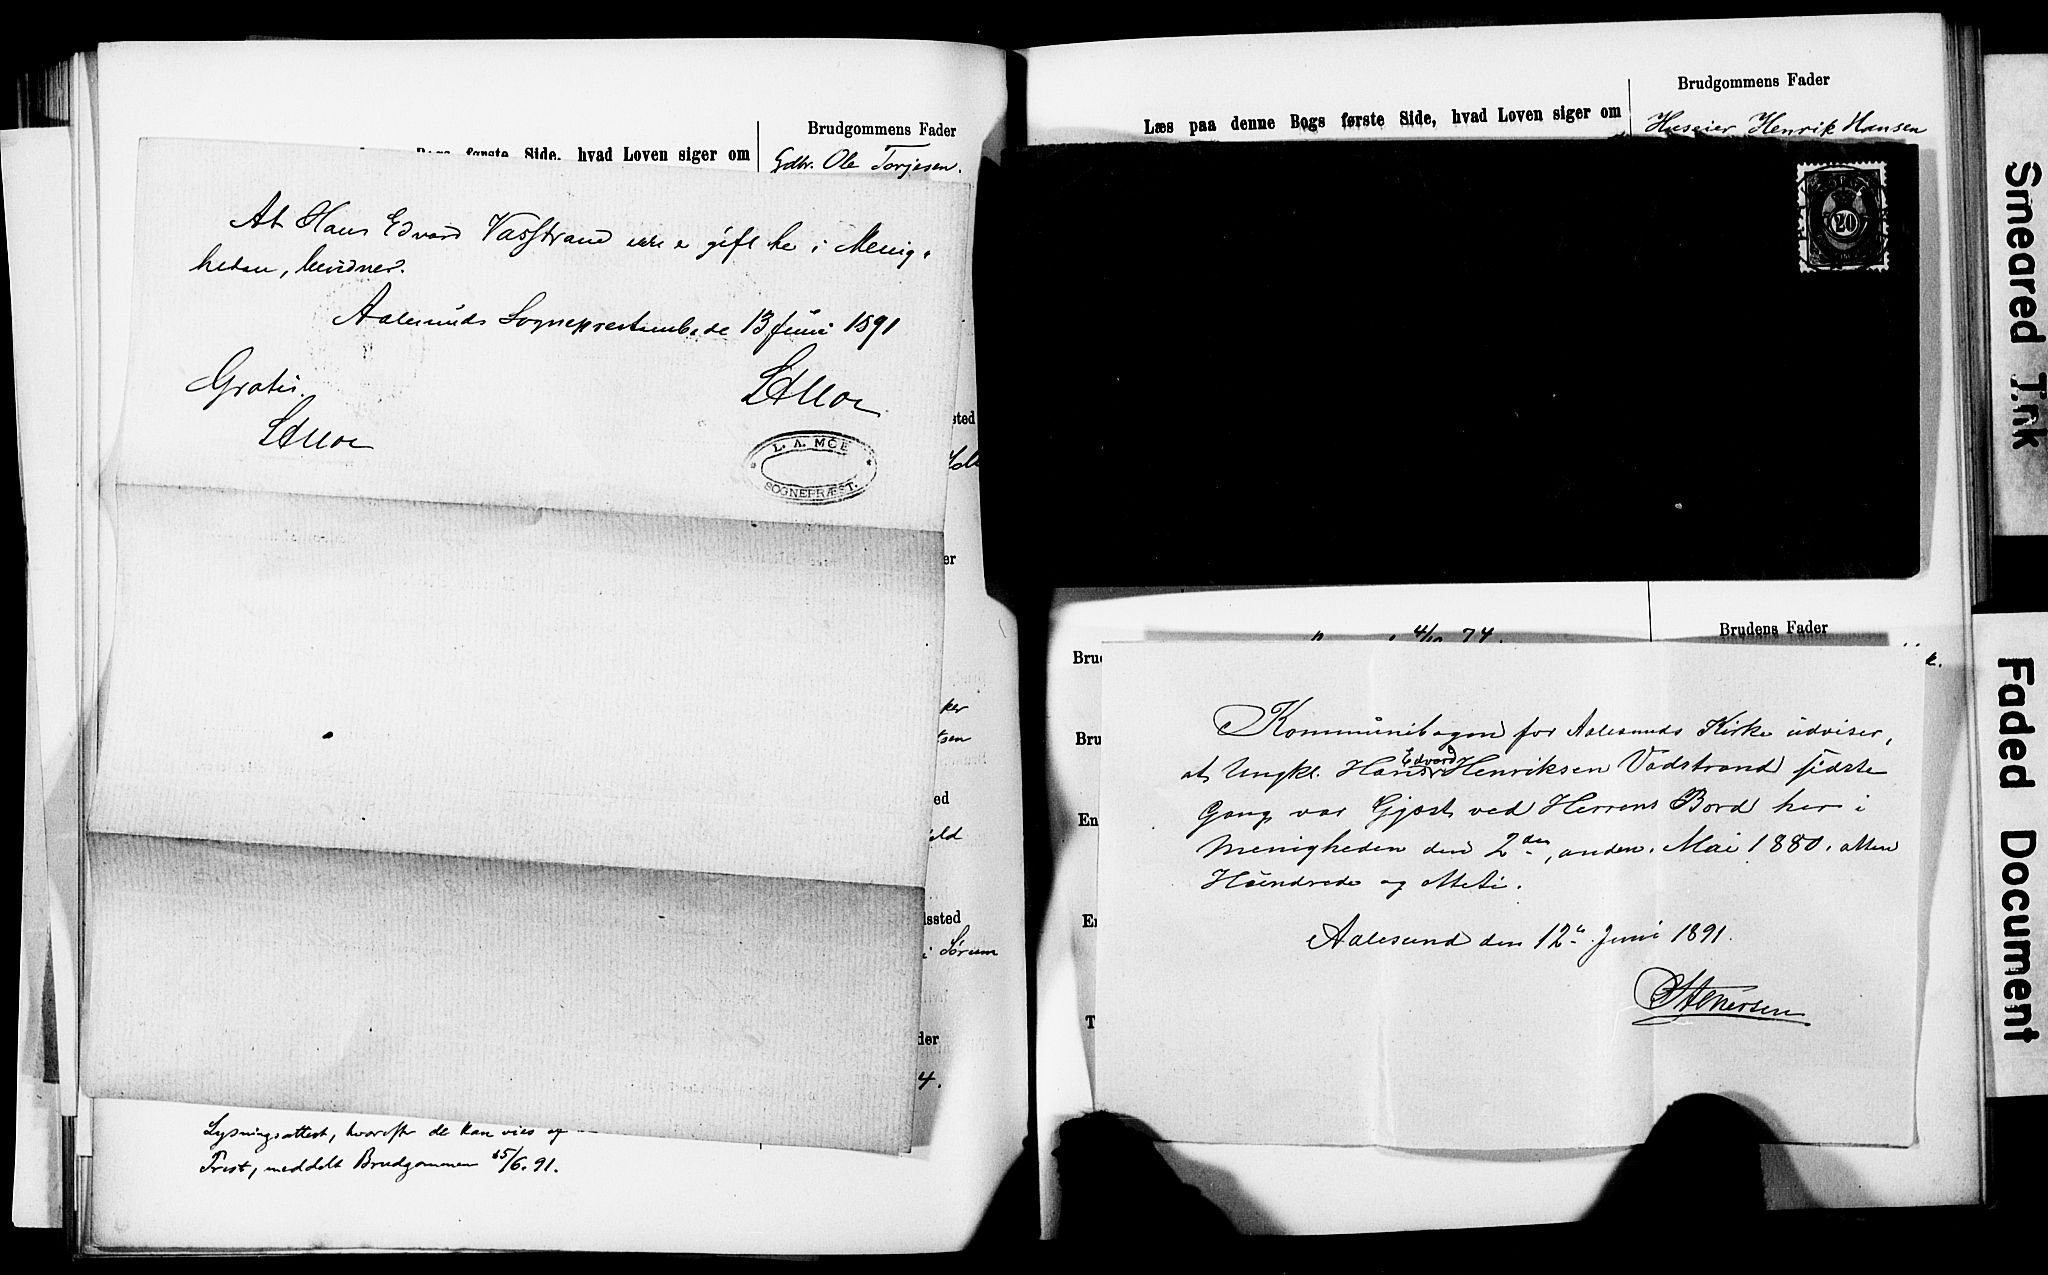 Brudgommens Fader
første Side, hvad Loven siger om
Gdbr. Ole Torjesen.
At Hans Edvard Vasstrand ikke er gift he i Menig-
heden, bevidner.
Aalesunds Sogneprestembede 13 Juni 1891
Gratis.
LAMoe
LAMoe
L. A. MOE
SOGNEPRÆST.
sted
er
ker
tsen
ed
eld
lssted
i Sørum
der
4.
Lysningsattest, hvorefter de kan vies og
Frist, meddelt Brudgommen 15/6. 91.
Brudgommens Fader
Læs paa denne Bogs første Side, hvad Loven siger om
Huseier Henrik Hansen
20
4/10 74.
Brudens Fader
Bru
k.
Bru
En
En
T
Kommunibogen for Aalesunds Kirke udviser,
at Ungkl. Hans Edvard Henriksen Vadstrand sidste
Gang var Gjæst ved Herrens Bord her i
Menigheden den 2den, anden. Mai 1880. atten
Hundrede og otteti.
Aalesund den 12te Juni 1891.
Stenersen
Smeared Ink
Faded Document